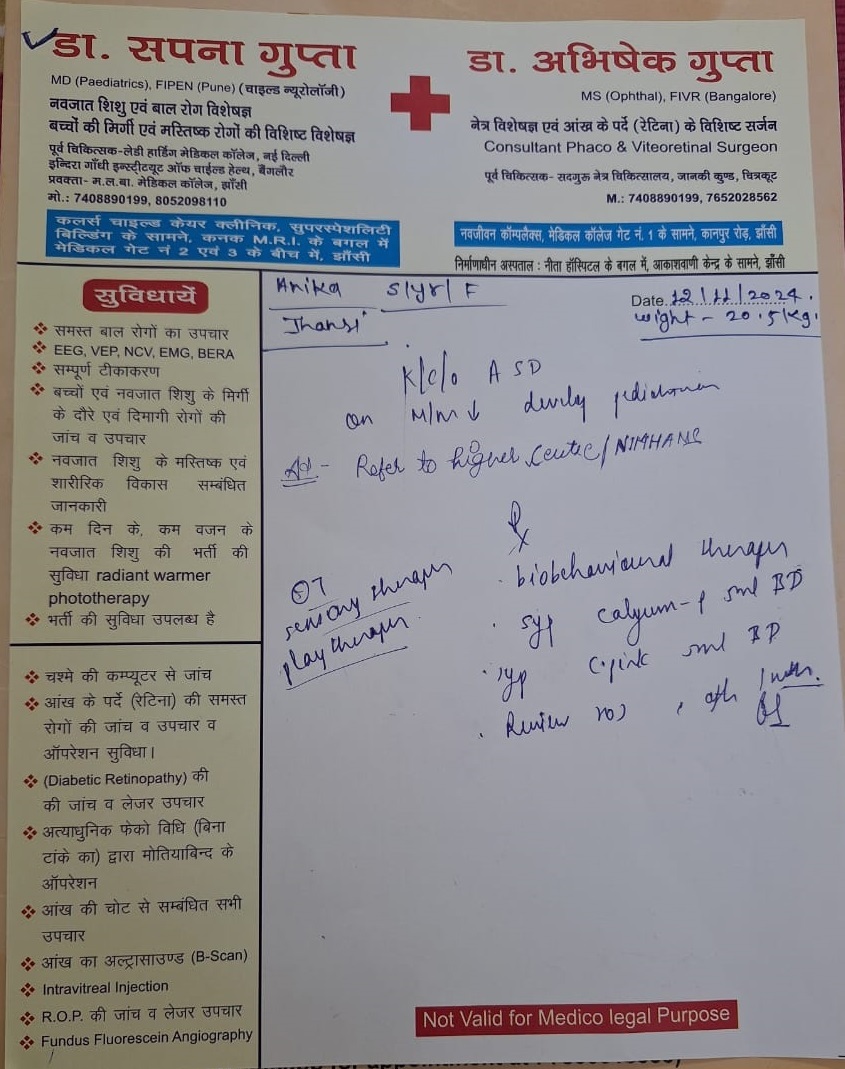 डा. सपना गुप्ता
MD (Paediatrics), FIPEN (Pune) (चाइल्ड न्यूरोलॉजी)
नवजात शिशु एवं बाल रोग विशेषज्ञ
बच्चों की मिर्गी एवं मस्तिष्क रोगों की विशिष्ट विशेषज्ञ
पूर्व चिकित्सक-लेडी हार्डिंग मेडिकल कॉलेज, नई दिल्ली
इन्दिरा गाँधी इन्स्टीट्यूट ऑफ चाईल्ड हेल्थ, बैंगलौर
प्रवक्ता- म.ल.बा. मेडिकल कॉलेज, झाँसी
मो.: 7408890199, 8052098110
कलर्स चाइल्ड केयर क्लीनिक, सुपरस्पेशलिटी
बिल्डिंग के सामने, कनक M.R.I. के बगल में
मेडिकल गेट नं 2 एवं 3 के बीच में, झाँसी
डा. अभिषेक गुप्ता
MS (Ophthal), FIVR (Bangalore)
नेत्र विशेषज्ञ एवं आंख के पर्दे (रेटिना) के विशिष्ट सर्जन
Consultant Phaco & Viteoretinal Surgeon
पूर्व चिकित्सक- सदगुरू नेत्र चिकित्सालय, जानकी कुण्ड, चित्रकूट
M.: 7408890199, 7652028562
नवजीवन कॉम्पलैक्स, मेडिकल कॉलेज गेट नं. 1 के सामने, कानपुर रोड़, झाँसी
निर्माणाधीन अस्पताल : नीता हॉस्पिटल के बगल में, आकाशवाणी केन्द्र के सामने, झाँसी
सुविधायें
समस्त बाल रोगों का उपचार
EEG, VEP, NCV, EMG, BERA
सम्पूर्ण टीकाकरण
बच्चों एवं नवजात शिशु के मिर्गी
के दौरे एवं दिमागी रोगों की
जांच व उपचार
नवजात शिशु के मस्तिष्क एवं
शारीरिक विकास सम्बंधित
जानकारी
कम दिन के, कम वजन के
नवजात शिशु की भर्ती की
सुविधा radiant warmer
phototherapy
भर्ती की सुविधा उपलब्ध है
चश्मे की कम्प्यूटर से जांच
आंख के पर्दे (रेटिना) की समस्त
रोगों की जांच व उपचार व
ऑपरेशन सुविधा।
(Diabetic Retinopathy) की
की जांच व लेजर उपचार
अत्याधुनिक फेको विधि (बिना
टांके का) द्वारा मोतियाबिन्द के
ऑपरेशन
आंख की चोट से सम्बंधित सभी
उपचार
आंख का अल्ट्रासाउण्ड (B-Scan)
Intravitreal Injection
R.O.P. की जांच व लेजर उपचार
Fundus Fluorescein Angiography
Anika 5/yr/F
Jhansi
Date 12/11/2024.
wight - 20.5/Kg.
K/c/o ASD
on M/m ↓
Refer to higher centre/NIMHANS
℞
OT
sensory therapy
play therapy
biobehavioural therapy
syp calyum-P 5ml BD
syp 5ml BD
Review
Not Valid for Medico legal Purpose